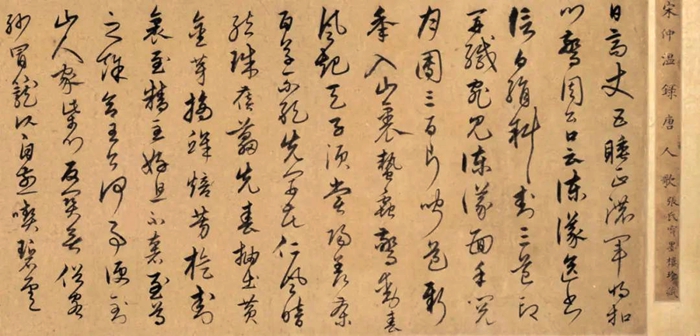 宋仲温錄唐人歌 張氏
日高丈五睡正濃軍將扣
門驚周公口云諫議送書
信白絹斜封三道印
開緘宛見諫議面手閱
月團三百片聞道新
年入山裏蟄蟲驚動春
風起天子須嘗陽羨茶
百草不敢先開花仁風暗
結珠琲瓃先春抽出黃
金芽摘鮮焙芳旋封
裹至精至好且不奢至尊
之餘合王公何事便到
山人家柴門反關無俗客
紗帽籠頭自煎喫碧雲